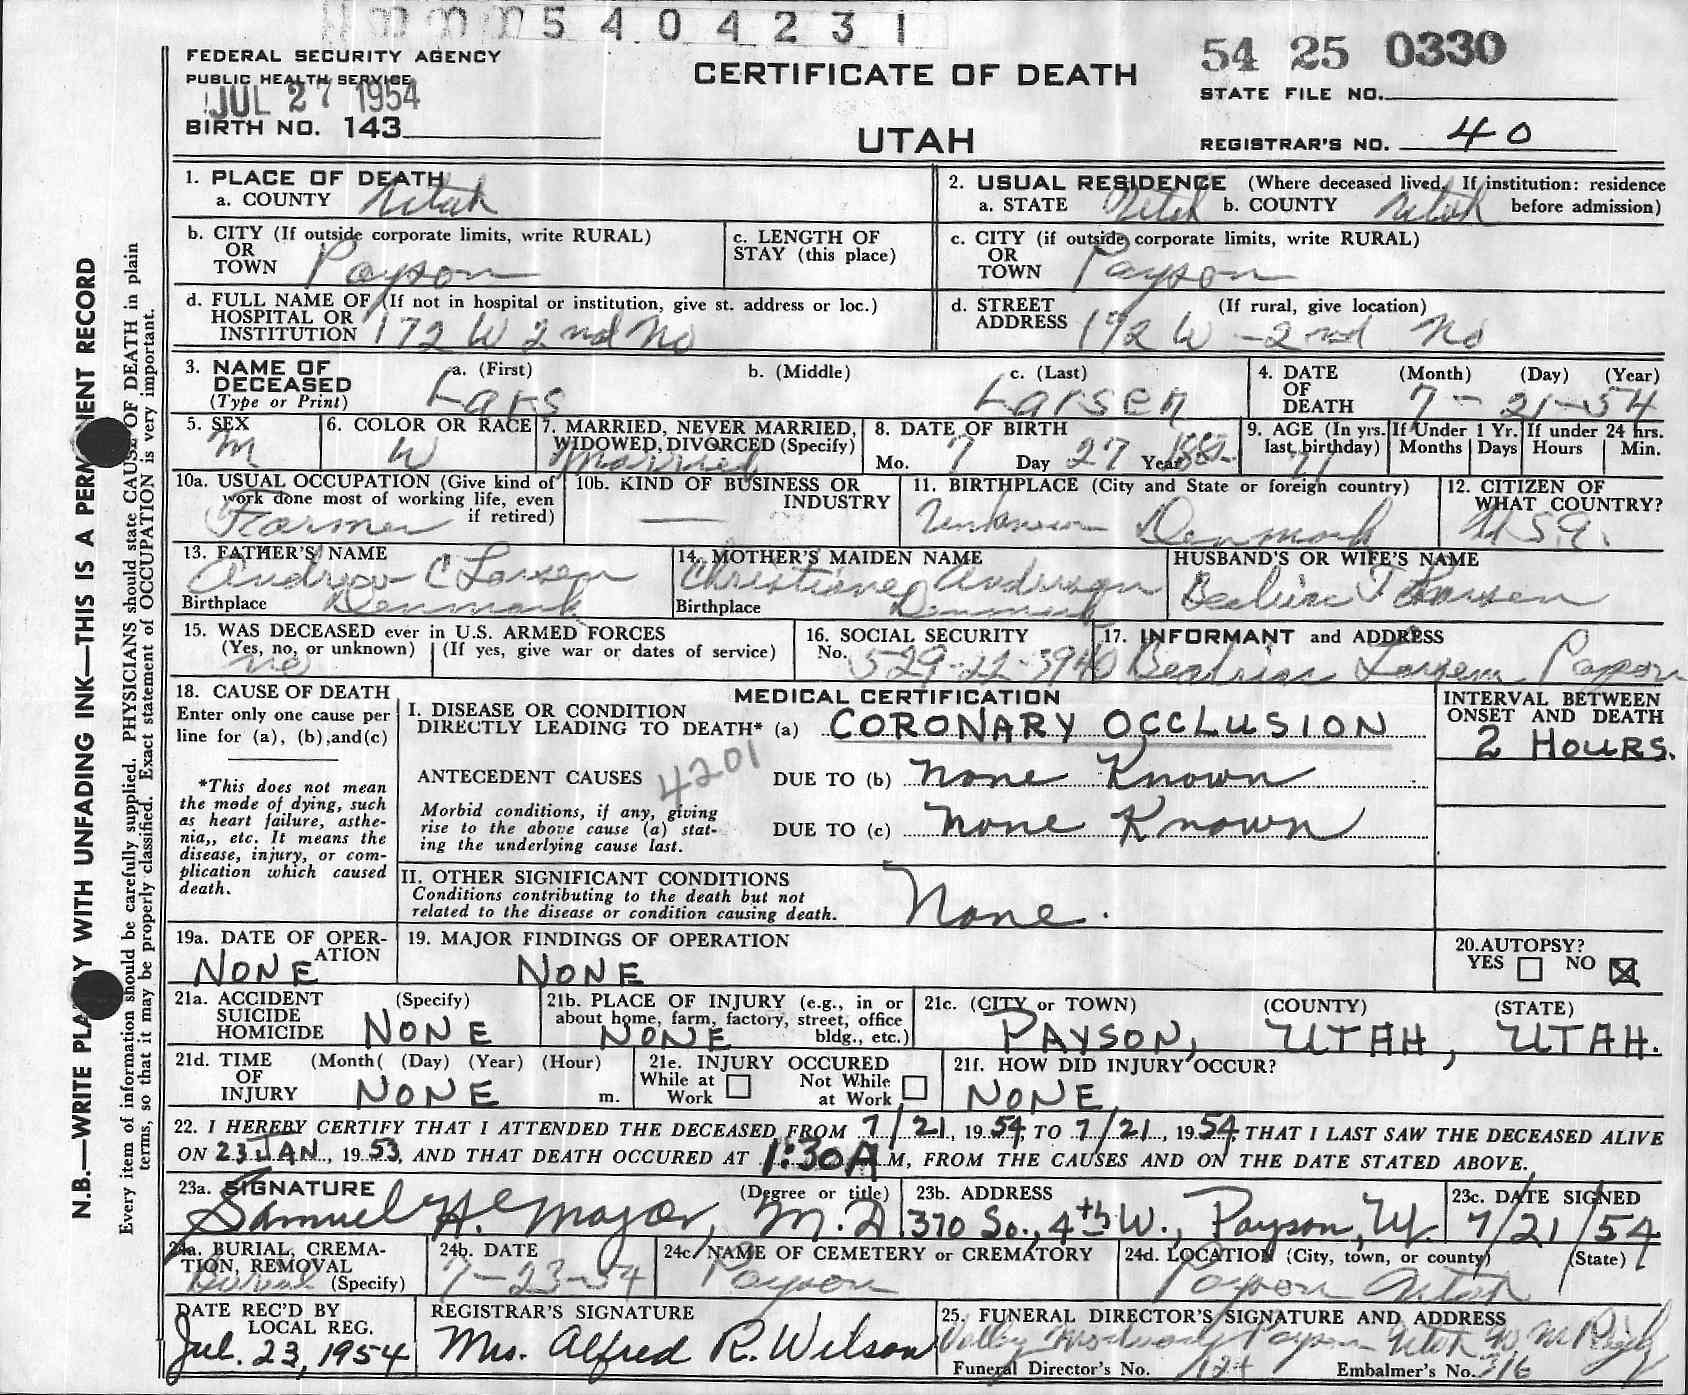 5 4 0 4 2 3 1
FEDERAL SECURITY AGENCY
PUBLIC HEALTH SERVICE
JUL 27 1954
BIRTH NO. 143
CERTIFICATE OF DEATH
UTAH
54 25 0330
STATE FILE NO.
REGISTRAR'S NO. 40
N.B.—WRITE PLAINLY WITH UNFADING INK—THIS IS A PERMANENT RECORD
Every item of information should be carefully supplied. PHYSICIANS should state CAUSE OF DEATH in plain
terms, so that it may be properly classified. Exact statement of OCCUPATION is very important.
1. PLACE OF DEATH
a. COUNTY Utah
2. USUAL RESIDENCE (Where deceased lived. If institution: residence
a. STATE Utah b. COUNTY Utah before admission)
b. CITY (If outside corporate limits, write RURAL)
OR
TOWN Payson
c. LENGTH OF
STAY (this place)
c. CITY (if outside corporate limits, write RURAL)
OR
TOWN Payson
d. FULL NAME OF (If not in hospital or institution, give st. address or loc.)
HOSPITAL OR
INSTITUTION 172 W 2nd No
d. STREET (If rural, give location)
ADDRESS 172 W - 2nd No
3. NAME OF DECEASED
(Type or Print)
a. (First) Lars
b. (Middle)
c. (Last) Larsen
4. DATE OF DEATH
(Month) (Day) (Year)
7 - 21 - 54
5. SEX
M
6. COLOR OR RACE
W
7. MARRIED, NEVER MARRIED,
WIDOWED, DIVORCED (Specify)
Married
8. DATE OF BIRTH
Mo. 7 Day 27 Year 1882
9. AGE (In yrs.
last birthday) 71
If Under 1 Yr.
Months Days
If under 24 hrs.
Hours Min.
10a. USUAL OCCUPATION (Give kind of
work done most of working life, even
if retired)
Farmer
10b. KIND OF BUSINESS OR
INDUSTRY
—
11. BIRTHPLACE (City and State or foreign country)
Unknown Denmark
12. CITIZEN OF
WHAT COUNTRY?
U.S.A.
13. FATHER'S NAME
Andrew C Larsen
Birthplace Denmark
14. MOTHER'S MAIDEN NAME
Christiane Anderson
Birthplace Denmark
HUSBAND'S OR WIFE'S NAME
Larsen
15. WAS DECEASED ever in U.S. ARMED FORCES
(Yes, no, or unknown) (If yes, give war or dates of service)
no
16. SOCIAL SECURITY
No. 529-22-3940
17. INFORMANT and ADDRESS
Larsen Payson
18. CAUSE OF DEATH
Enter only one cause per
line for (a), (b),and(c)
*This does not mean
the mode of dying, such
as heart failure, asthe-
nia,, etc. It means the
disease, injury, or com-
plication which caused
death.
MEDICAL CERTIFICATION
I. DISEASE OR CONDITION
DIRECTLY LEADING TO DEATH* (a) CORONARY OCCLUSION
INTERVAL BETWEEN
ONSET AND DEATH
2 HOURS.
ANTECEDENT CAUSES 4201
DUE TO (b) None Known
Morbid conditions, if any, giving
rise to the above cause (a) stat-
ing the underlying cause last.
DUE TO (c) None Known
II. OTHER SIGNIFICANT CONDITIONS
Conditions contributing to the death but not
related to the disease or condition causing death.
None.
19a. DATE OF OPER-
ATION
NONE
19. MAJOR FINDINGS OF OPERATION
NONE
20.AUTOPSY?
YES NO
21a. ACCIDENT (Specify)
SUICIDE
HOMICIDE NONE
21b. PLACE OF INJURY (e.g., in or
about home, farm, factory, street, office
bldg., etc.)
NONE
21c. (CITY or TOWN) (COUNTY) (STATE)
PAYSON, UTAH, UTAH.
21d. TIME (Month( (Day) (Year) (Hour)
OF
INJURY NONE m.
21e. INJURY OCCURED
While at Work
Not While at Work
21f. HOW DID INJURY OCCUR?
NONE
22. I HEREBY CERTIFY THAT I ATTENDED THE DECEASED FROM 7/21, 1954, TO 7/21, 1954, THAT I LAST SAW THE DECEASED ALIVE
ON 23 JAN, 1953, AND THAT DEATH OCCURED AT 1:30 A M, FROM THE CAUSES AND ON THE DATE STATED ABOVE.
23a. SIGNATURE (Degree or title)
Samuel H. Major, M.D.
23b. ADDRESS
370 So., 4th W., Payson, Ut.
23c. DATE SIGNED
7/21/54
24a. BURIAL, CREMA-
TION, REMOVAL
(Specify)
Burial
24b. DATE
7-23-54
24c. NAME OF CEMETERY or CREMATORY
Payson
24d. LOCATION (City, town, or county) (State)
Payson Utah
DATE REC'D BY
LOCAL REG.
Jul. 23, 1954
REGISTRAR'S SIGNATURE
Mrs. Alfred R. Wilson
25. FUNERAL DIRECTOR'S SIGNATURE AND ADDRESS
Valley Mortuary Payson Utah
Funeral Director's No. 124 Embalmer's No. 316